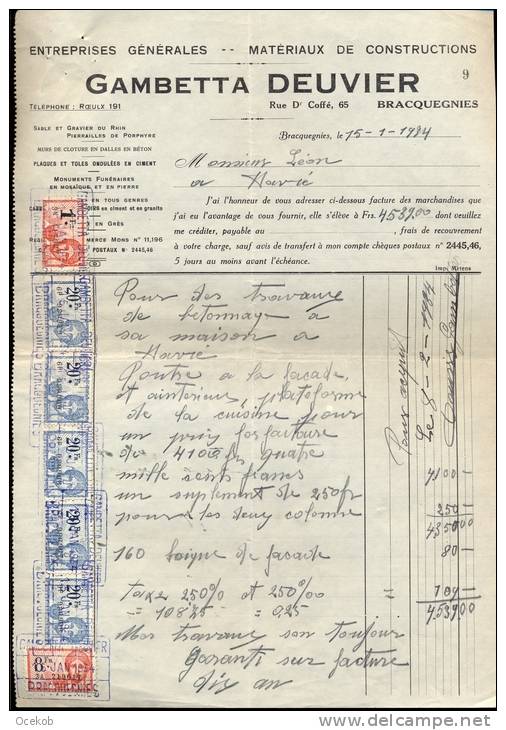 ENTREPRISES GÉNÉRALES -- MATÉRIAUX DE CONSTRUCTIONS
9
GAMBETTA DEUVIER
TÉLÉPHONE : RŒULX 191
Rue Dr Coffé, 65 BRACQUEGNIES
SABLE ET GRAVIER DU RHIN
PIERRAILLES DE PORPHYRE
MURS DE CLOTURE EN DALLES EN BÉTON
PLAQUES ET TOLES ONDULÉES EN CIMENT
MONUMENTS FUNÉRAIRES
EN MOSAÏQUE ET EN PIERRE
EN TOUS GENRES
en ciment et en granite
EN GRÈS
MONS N° 11,196
POSTAUX N° 2445,46
Bracquegnies, le 15-1-1934
Monsieur Léon
a Havré
J'ai l'honneur de vous adresser ci-dessous facture des marchandises que
j'ai eu l'avantage de vous fournir, elle s'élève à Frs. 4539.00 dont veuillez
me créditer, payable au , frais de recouvrement
à votre charge, sauf avis de transfert à mon compte chèques postaux n° 2445,46,
5 jours au moins avant l'échéance.
Imp. Mirtens
Pour des travaux
de betonnage a
sa maison a
Havré
Poutre a la facade
et aintérieur, plateforme
de la cuisine pour
un prix forfaitaire
de 4100 frs quatre
mille cent francs
4100 —
un suplement de 250 fr
pour les deux colonne
250 —
4350.00
160 boique de facade
80 —
taxe 250% et 250%00
= 109 —
= 108.75 = 0.25
4539.00
Mes travaux son toujour
garanti sur facture
dix an
Pour acquit
Le 8-2-1934
1 Fr
20 Fr
20 Fr
20 Fr
20 Fr
20 Fr
8 Fr
JAN
BRACQUEGNIES
Ocekob
delcampe.net